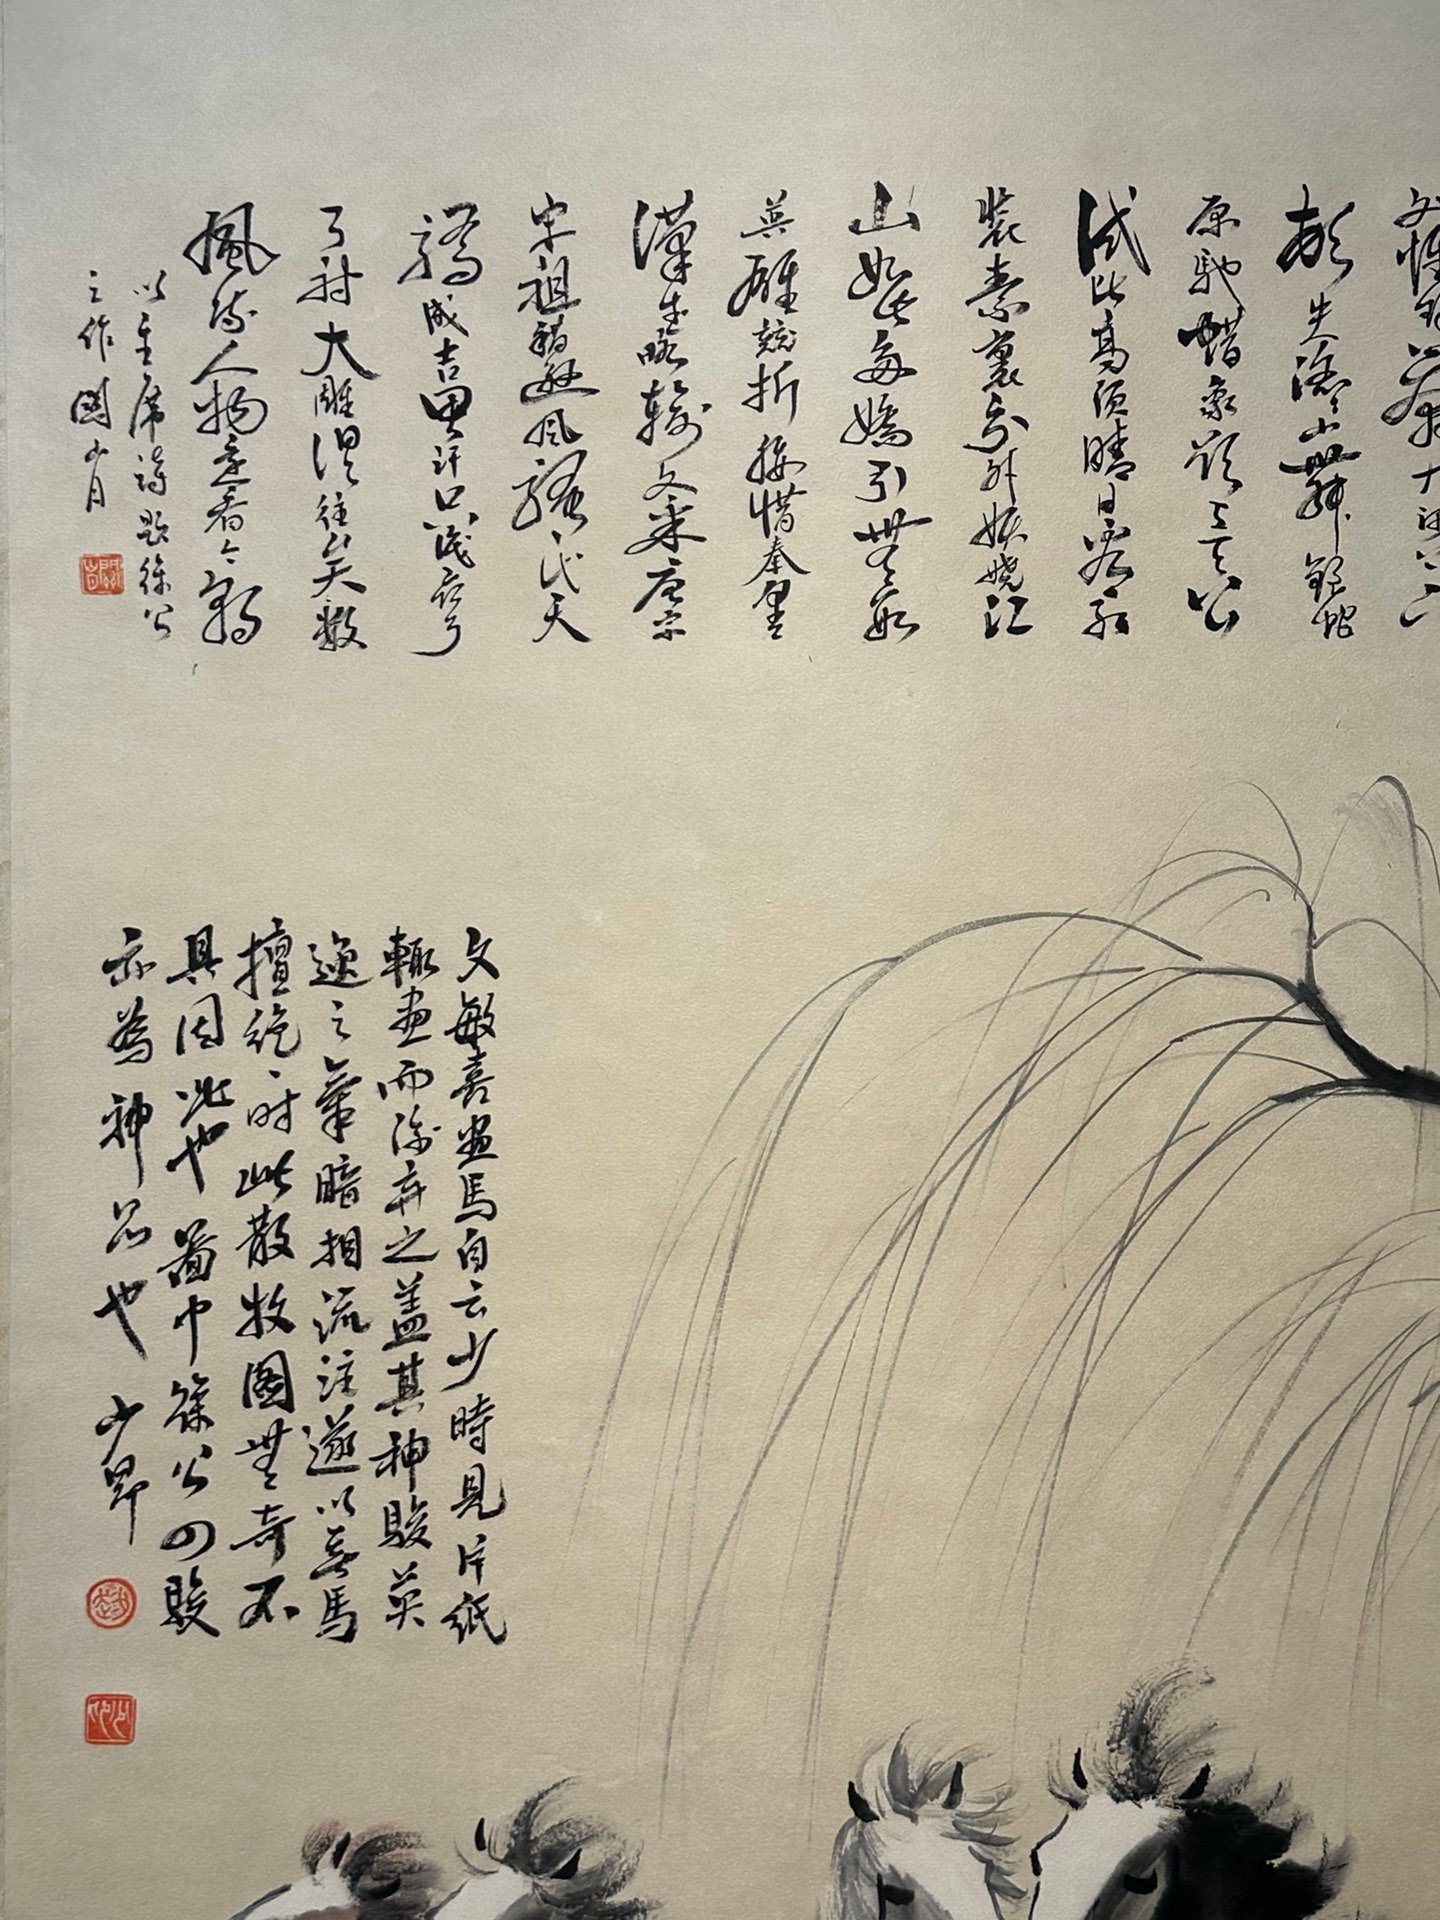 頓失滔滔山舞銀蛇
原馳蠟象欲与天公
試比高須晴日看紅
裝素裹分外妖嬈江
山如此多嬌引無數
英雄競折腰惜秦皇
漢武略輸文采唐宗
宋祖稍遜風騷一代天
驕成吉思汗只識彎弓
射大雕俱往矣數
風流人物還看今朝
以主席詩題徐公
之作 關山月
文敏喜畫馬自云少時見片紙
輒畫而後弃之蓋其神駿英
逸之氣暗相流注遂以善馬
擅絕一時此散牧图無奇不
具因此也 圖中徐公四駿
亦為神品也 少昂